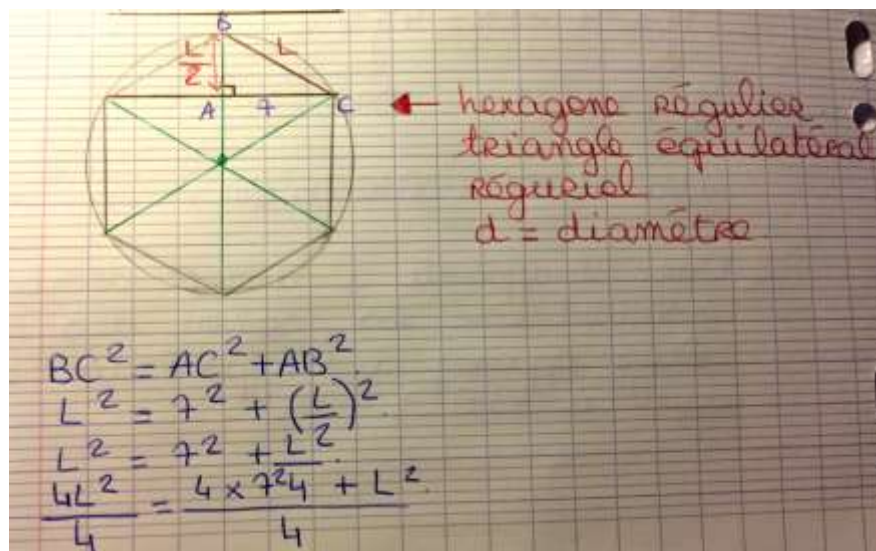 B
L/2
L
A 7 C
hexagone régulier
triangle équilatéral
régueiel
d = diamétre
BC² = AC² + AB²
L² = 7² + (L/2)².
L² = 7² + L²/4.
4L²/4 = 4 x 7² + L²/4